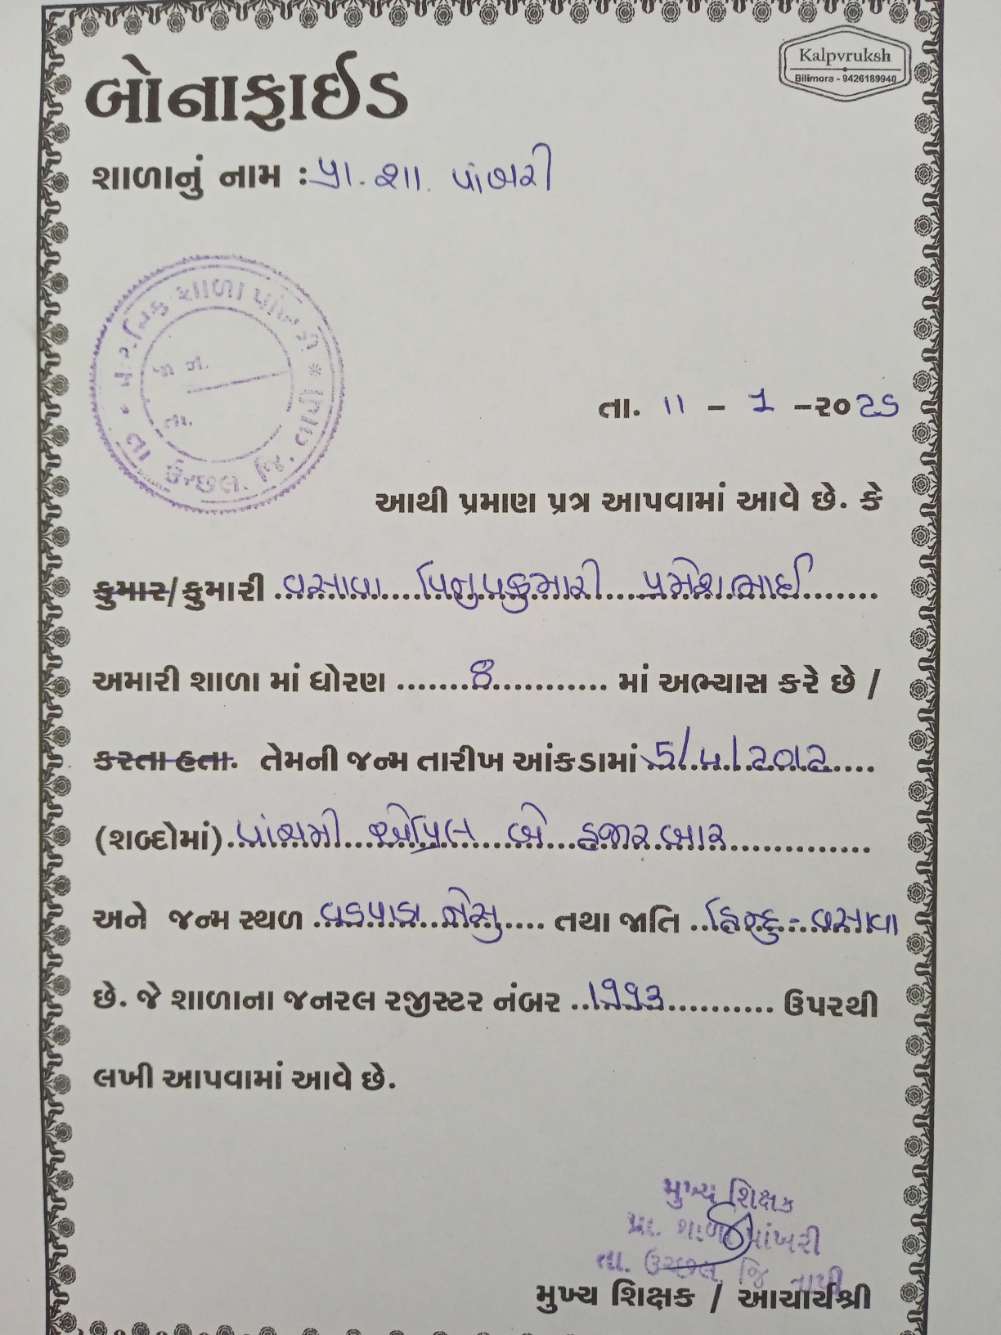 Kalpvruksh
Bilimora - 9426189940
બોનાફાઈડ
શાળાનું નામ : પ્રા. શા. પાંખરી
તા. ૧૧ - ૧ - ૨૦૨૬
આથી પ્રમાણ પત્ર આપવામાં આવે છે. કે
કુમાર/કુમારી વસાવા પિનુપકુમારી પ્રમેશભાઈ
અમારી શાળા માં ધોરણ ........8............ માં અભ્યાસ કરે છે /
કરતા હતા. તેમની જન્મ તારીખ આંકડામાં 5/4/2012
(શબ્દોમાં) પાંચમી એપ્રિલ બે હજાર બાર
અને જન્મ સ્થળ વડપાડા નેસુ તથા જાતિ હિન્દુ - વસાવા
છે. જે શાળાના જનરલ રજીસ્ટર નંબર ..૧૧૧૩.......... ઉપરથી
લખી આપવામાં આવે છે.
મુખ્ય શિક્ષક
પ્રા. શાળા પાંખરી
તા. ઉચ્છલ, જિ તાપી
મુખ્ય શિક્ષક / આચાર્યશ્રી